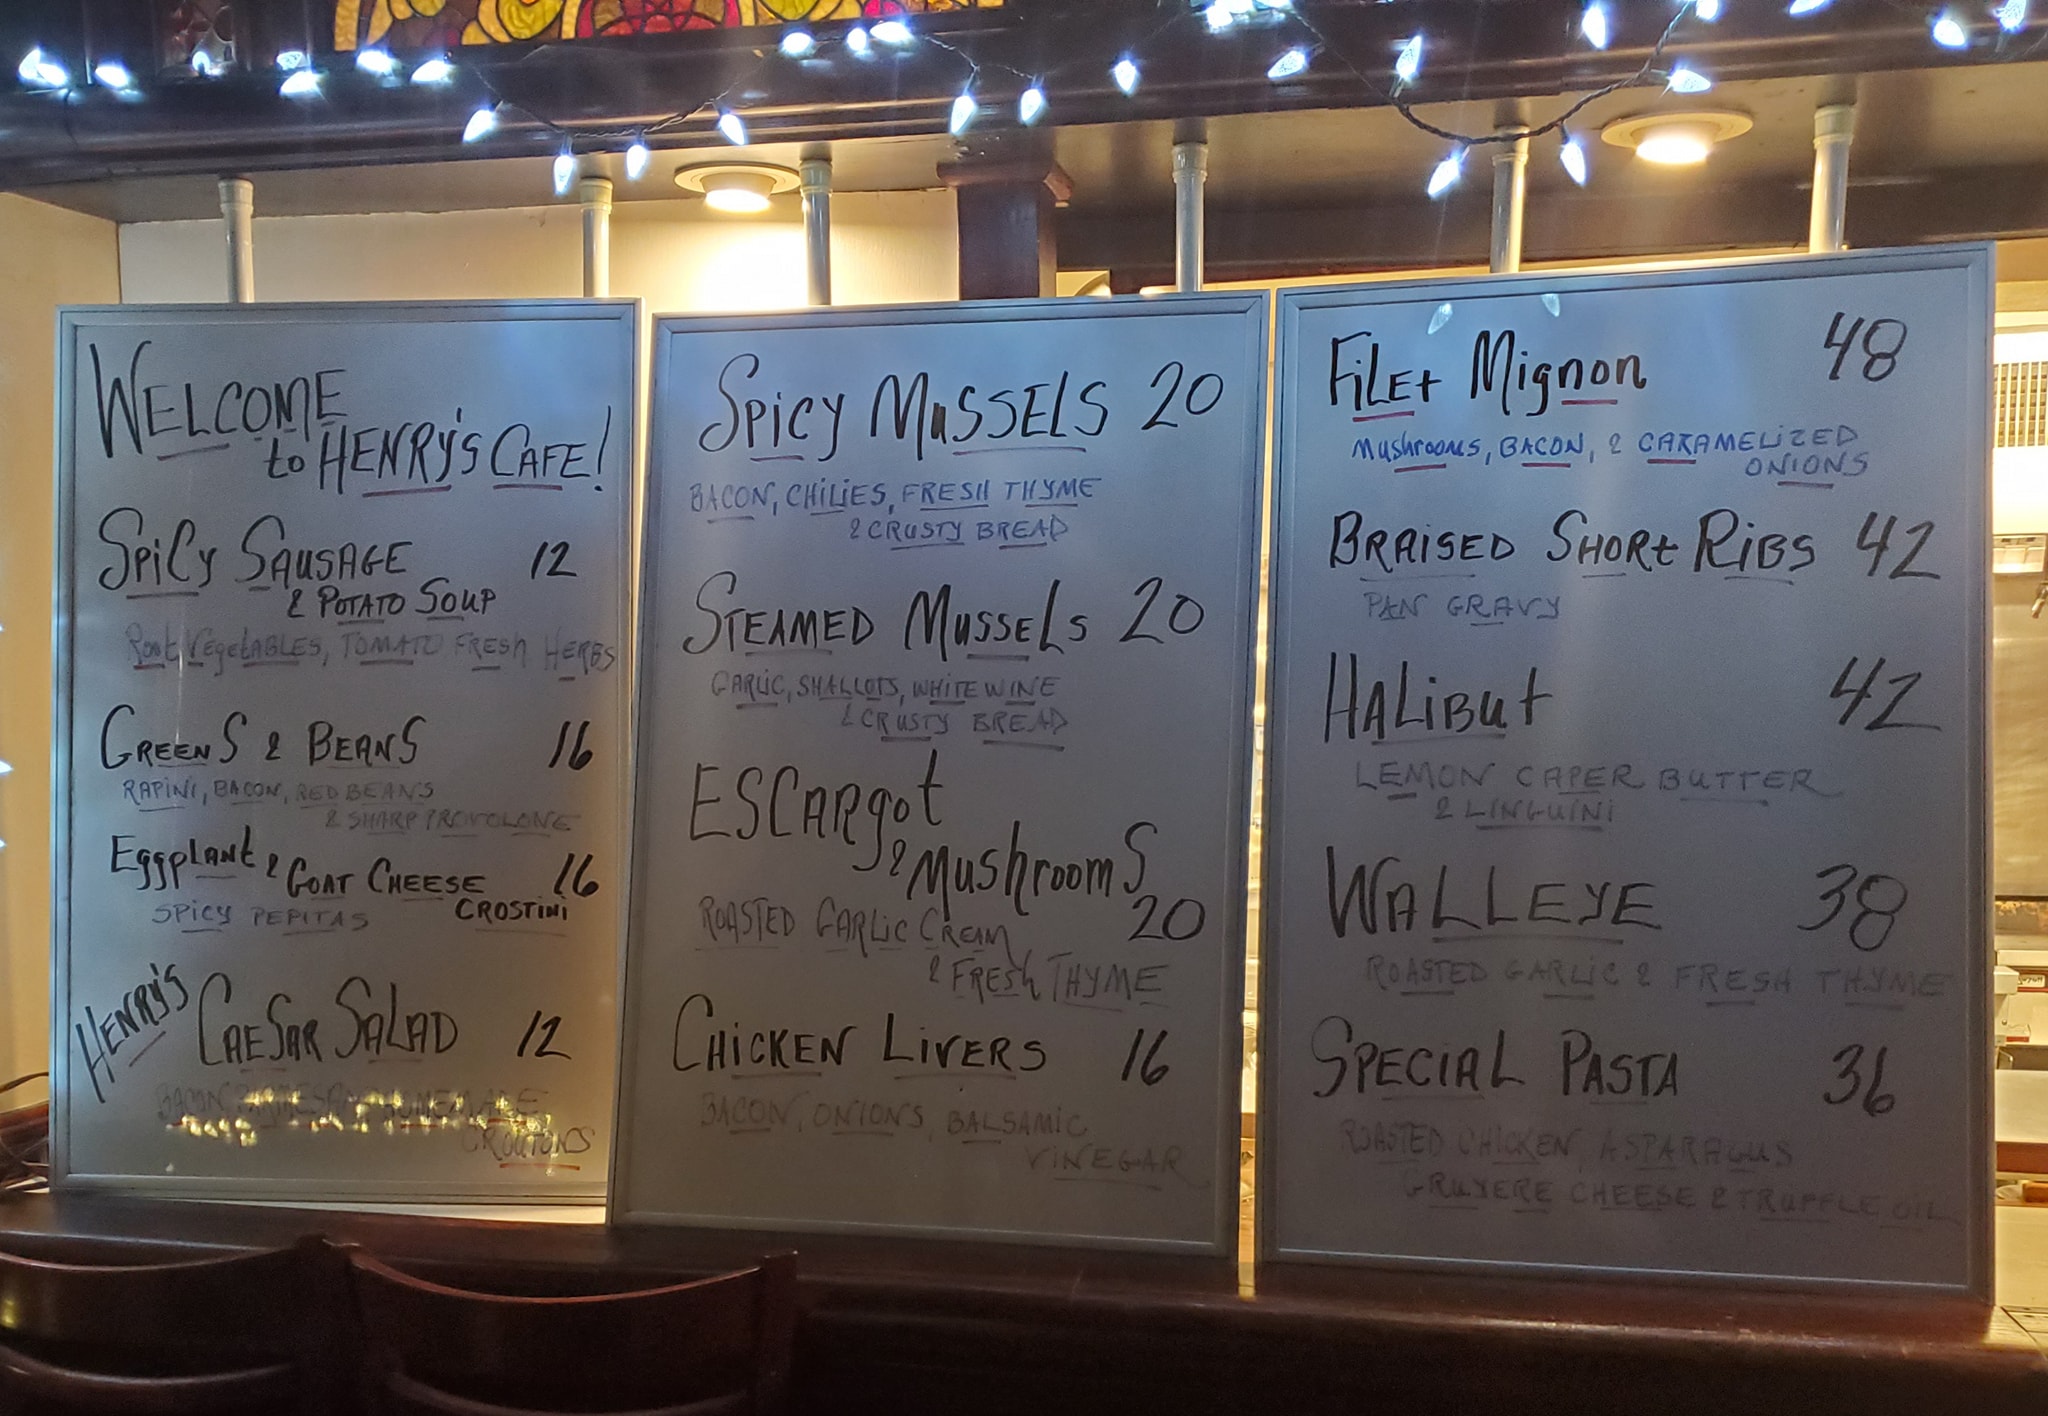 WELCOME
to HENRY'S CAFE!
SPICY SAUSAGE 12
& POTATO SOUP
Root Vegetables, TOMATO FRESH HERBS
GREENS & BEANS 16
RAPINI, BACON, RED BEANS
& SHARP PROVOLONE
Eggplant & GOAT CHEESE 16
SPICY PEPITAS CROSTINI
HENRY'S CAESAR SALAD 12
BACON, PARMESAN HOMEMADE
CROUTONS
SPICY MUSSELS 20
BACON, CHILIES, FRESH THYME
& CRUSTY BREAD
STEAMED MUSSELS 20
GARLIC, SHALLOTS, WHITE WINE
& CRUSTY BREAD
ESCARgot
& MushroomS
20
ROASTED GARLIC CREAM
& FRESH THYME
CHICKEN LIVERS 16
BACON, ONIONS, BALSAMIC
VINEGAR
FILEt Mignon 48
Mushrooms, BACON, & CARAMELIZED
ONIONS
BRAISED SHORt RIBS 42
PAN GRAVY
HALIBUt 42
LEMON CAPER BUTTER
& LINGUINI
WALLEYE 38
ROASTED GARLIC & FRESH THYME
SPECIAL PASTA 36
ROASTED CHICKEN, ASPARAGUS
GRUYERE CHEESE & TRUFFLE OIL